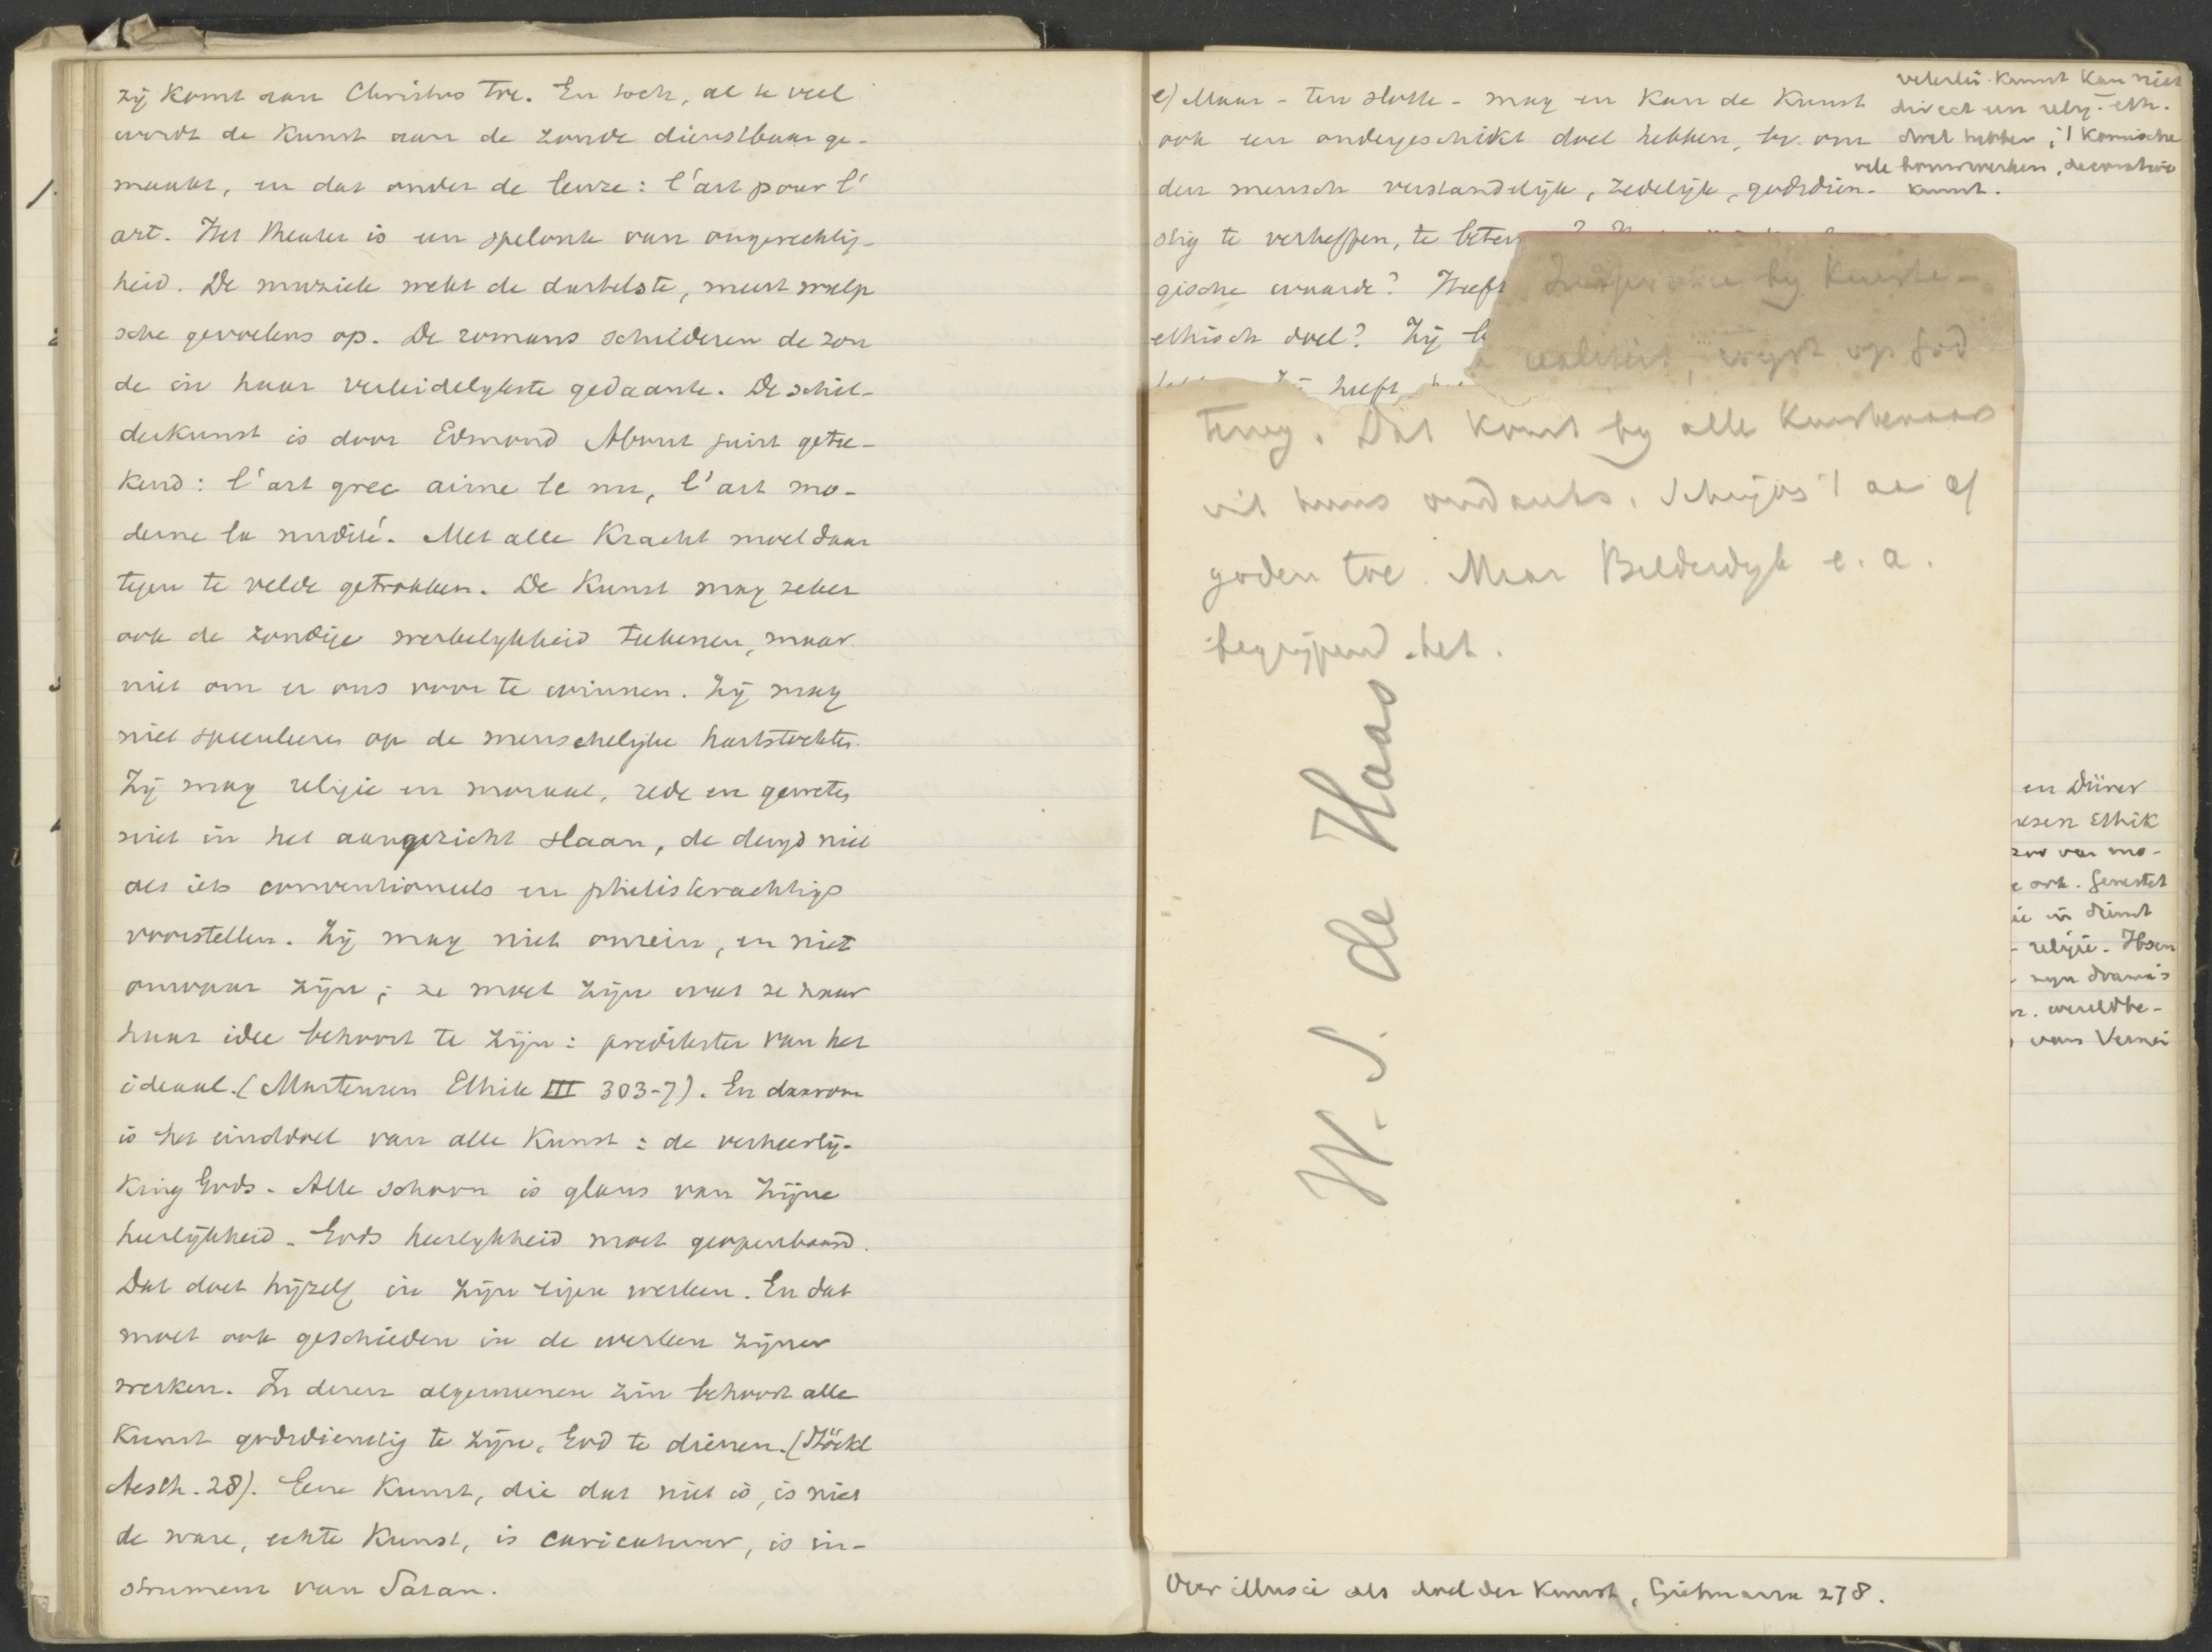 zij komt aan Christus toe. En toch, al te veel
wordt de Kunst aan de zonde dienstbaar ge-
maakt, en dat onder de leuze: l'art pour l'
art. Het theater is een spelonk van ongerechtig-
heid. De muziek wekt de dartelste, meest wulp
sche gevoelens op. De romans schilderen de zon
de in haar verleidelijkste gedaante. De schil-
derkunst is door Edmond About juist getee-
kend: l'art grec aime le nu, l'art mo-
derne la nudité. Met alle Kracht moet daar
tegen te velde getrokken. De Kunst mag zeker
ook de zondige werkelijkheid teekenen, maar
niet om er ons voor te winnen. Zij mag
niet speculeeren op de menschelijke hartstochten.
Zij mag religie en moraal, rede en geweten
niet in het aangezicht slaan, de deugd niet
als iets conventioneels en philisterachtigs
voorstellen. Zij mag niet onrein, en niet
onwaar zijn; ze moet zijn wat ze naar
haar idee behoort te zijn: predikster van het
ideaal. (Martensen Ethik III 303-7). En daarom
is het einddoel van alle Kunst: de verheerlij-
king Gods. Alle schoon is glans van Zijne
heerlijkheid. Gods heerlijkheid moet geopenbaard.
Dat doet hijzelf in Zijn eigen werken. En dat
moet ook geschieden in de werken zijner
werken. In dezen algemeenen zin behoort alle
Kunst godsdienstig te zijn, God te dienen. (Stöckl
Aesth. 28). Eene Kunst, die dat niet is, is niet
de ware, echte Kunst, is caricatuur, is in-
strument van Satan.
e) Maar - ten slotte - mag en kan de Kunst
ook een ondergeschikt doel hebben, bv. om
den mensch verstandelijk, zedelijk, godsdien-
stig te verheffen, te beter
gische waarde? Heeft
ethisch doel? Zij
heeft
velerlei Kunst kan niet
direct een relig.-eth.
doel hebben; 't Komische
vele bouwwerken, decoratieve
kunst.
by Kunste-
realiteit, wijst op God
terug. Dat komt by alle Kunstenaars
uit huns ondanks.
goden toe. Maar Bilderdyk e. a.
begrijpend het.
W. S. de Haas
en Dürer
Ethik
van mo-
ook. Genestet
in dienst
religie. Ibsen
zyn drama's
wereldbe-
Over illusie als doel der Kunst, Gietmann 278.